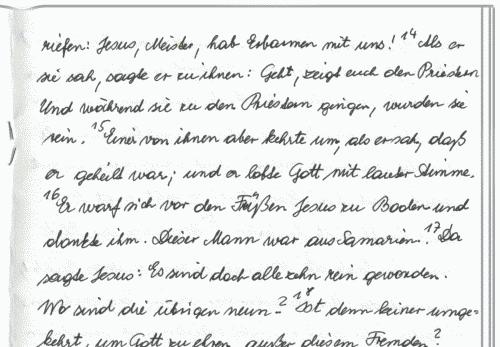 riefen: Jesus, Meister, hab Erbarmen mit uns! 14 Als er
sie sah, sagte er zu ihnen: Geht, zeigt euch den Priestern
Und während sie zu den Priestern gingen, wurden sie
rein. 15 Einer von ihnen aber kehrte um, als er sah, daß
er geheilt war; und er lobte Gott mit lauter Stimme.
16 Er warf sich vor den Füßen Jesus zu Boden und
dankte ihm. Dieser Mann war aus Samarien. 17 Da
sagte Jesus: Es sind doch alle zehn rein geworden.
Wo sind die übrigen neun? 18 Ist denn keiner umge-
kehrt, um Gott zu ehren, außer diesem Fremden?